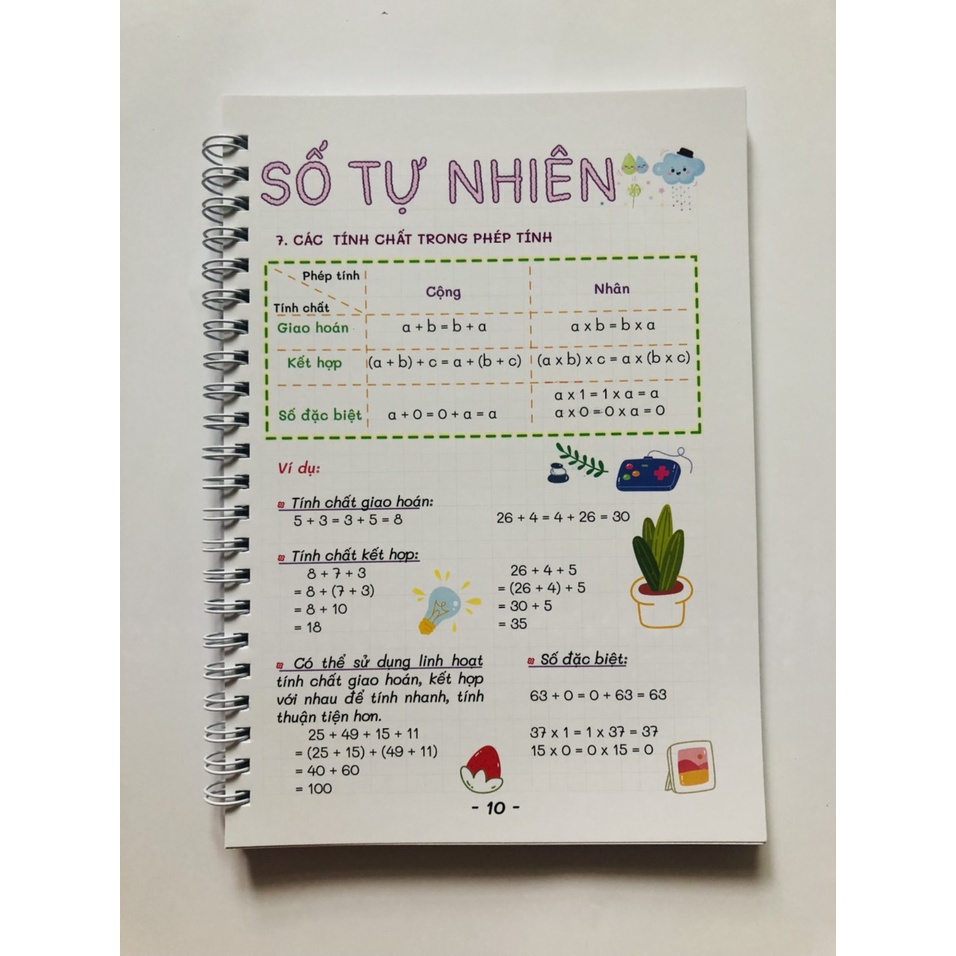 SỐ TỰ NHIÊN
7. CÁC TÍNH CHẤT TRONG PHÉP TÍNH
Phép tính
Tính chất
Cộng
Nhân
Giao hoán
a + b = b + a
a x b = b x a
Kết hợp
(a + b) + c = a + (b + c)
(a x b) x c = a x (b x c)
Số đặc biệt
a + 0 = 0 + a = a
a x 1 = 1 x a = a
a x 0 = 0 x a = 0
Ví dụ:
Tính chất giao hoán:
5 + 3 = 3 + 5 = 8
26 + 4 = 4 + 26 = 30
Tính chất kết hợp:
8 + 7 + 3
= 8 + (7 + 3)
= 8 + 10
= 18
26 + 4 + 5
= (26 + 4) + 5
= 30 + 5
= 35
Có thể sử dụng linh hoạt
tính chất giao hoán, kết hợp
với nhau để tính nhanh, tính
thuận tiện hơn.
25 + 49 + 15 + 11
= (25 + 15) + (49 + 11)
= 40 + 60
= 100
Số đặc biệt:
63 + 0 = 0 + 63 = 63
37 x 1 = 1 x 37 = 37
15 x 0 = 0 x 15 = 0
- 10 -